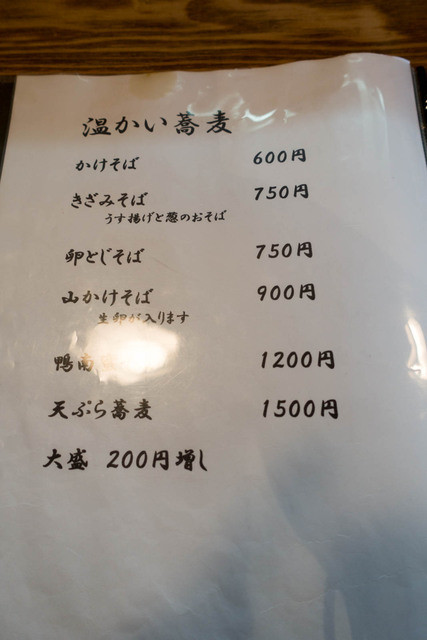 温かい蕎麦
かけそば 600円
きざみそば 750円
うす揚げと葱のおそば
卵とじそば 750円
山かけそば 900円
生卵が入ります
鴨南 1200円
天ぷら蕎麦 1500円
大盛 200円増し